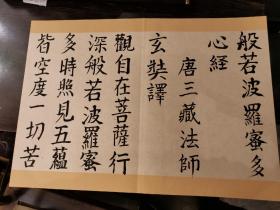 般若波羅蜜多
心経
唐三藏法師
玄奘譯
觀自在菩薩行
深般若波羅蜜
多時照見五蘊
皆空度一切苦